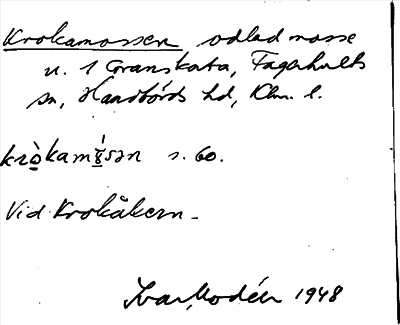 Krokamossen, odlad mosse
u. 1 Granskata, Fagerhults
sn, Handbörds hd, Klm. l.
kròkamɷ̀sən s. 60.
Vid Krokåkern.
Ivar Modéer 1948